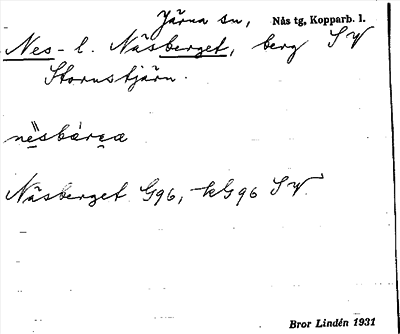 Järna sn, Nås tg, Kopparb. l.
Nes- l. Näsberget, berg SV
Stornstjärn.
nèsbárʒa
Näsberget G96, -kG96 SV
Bror Lindén 1931